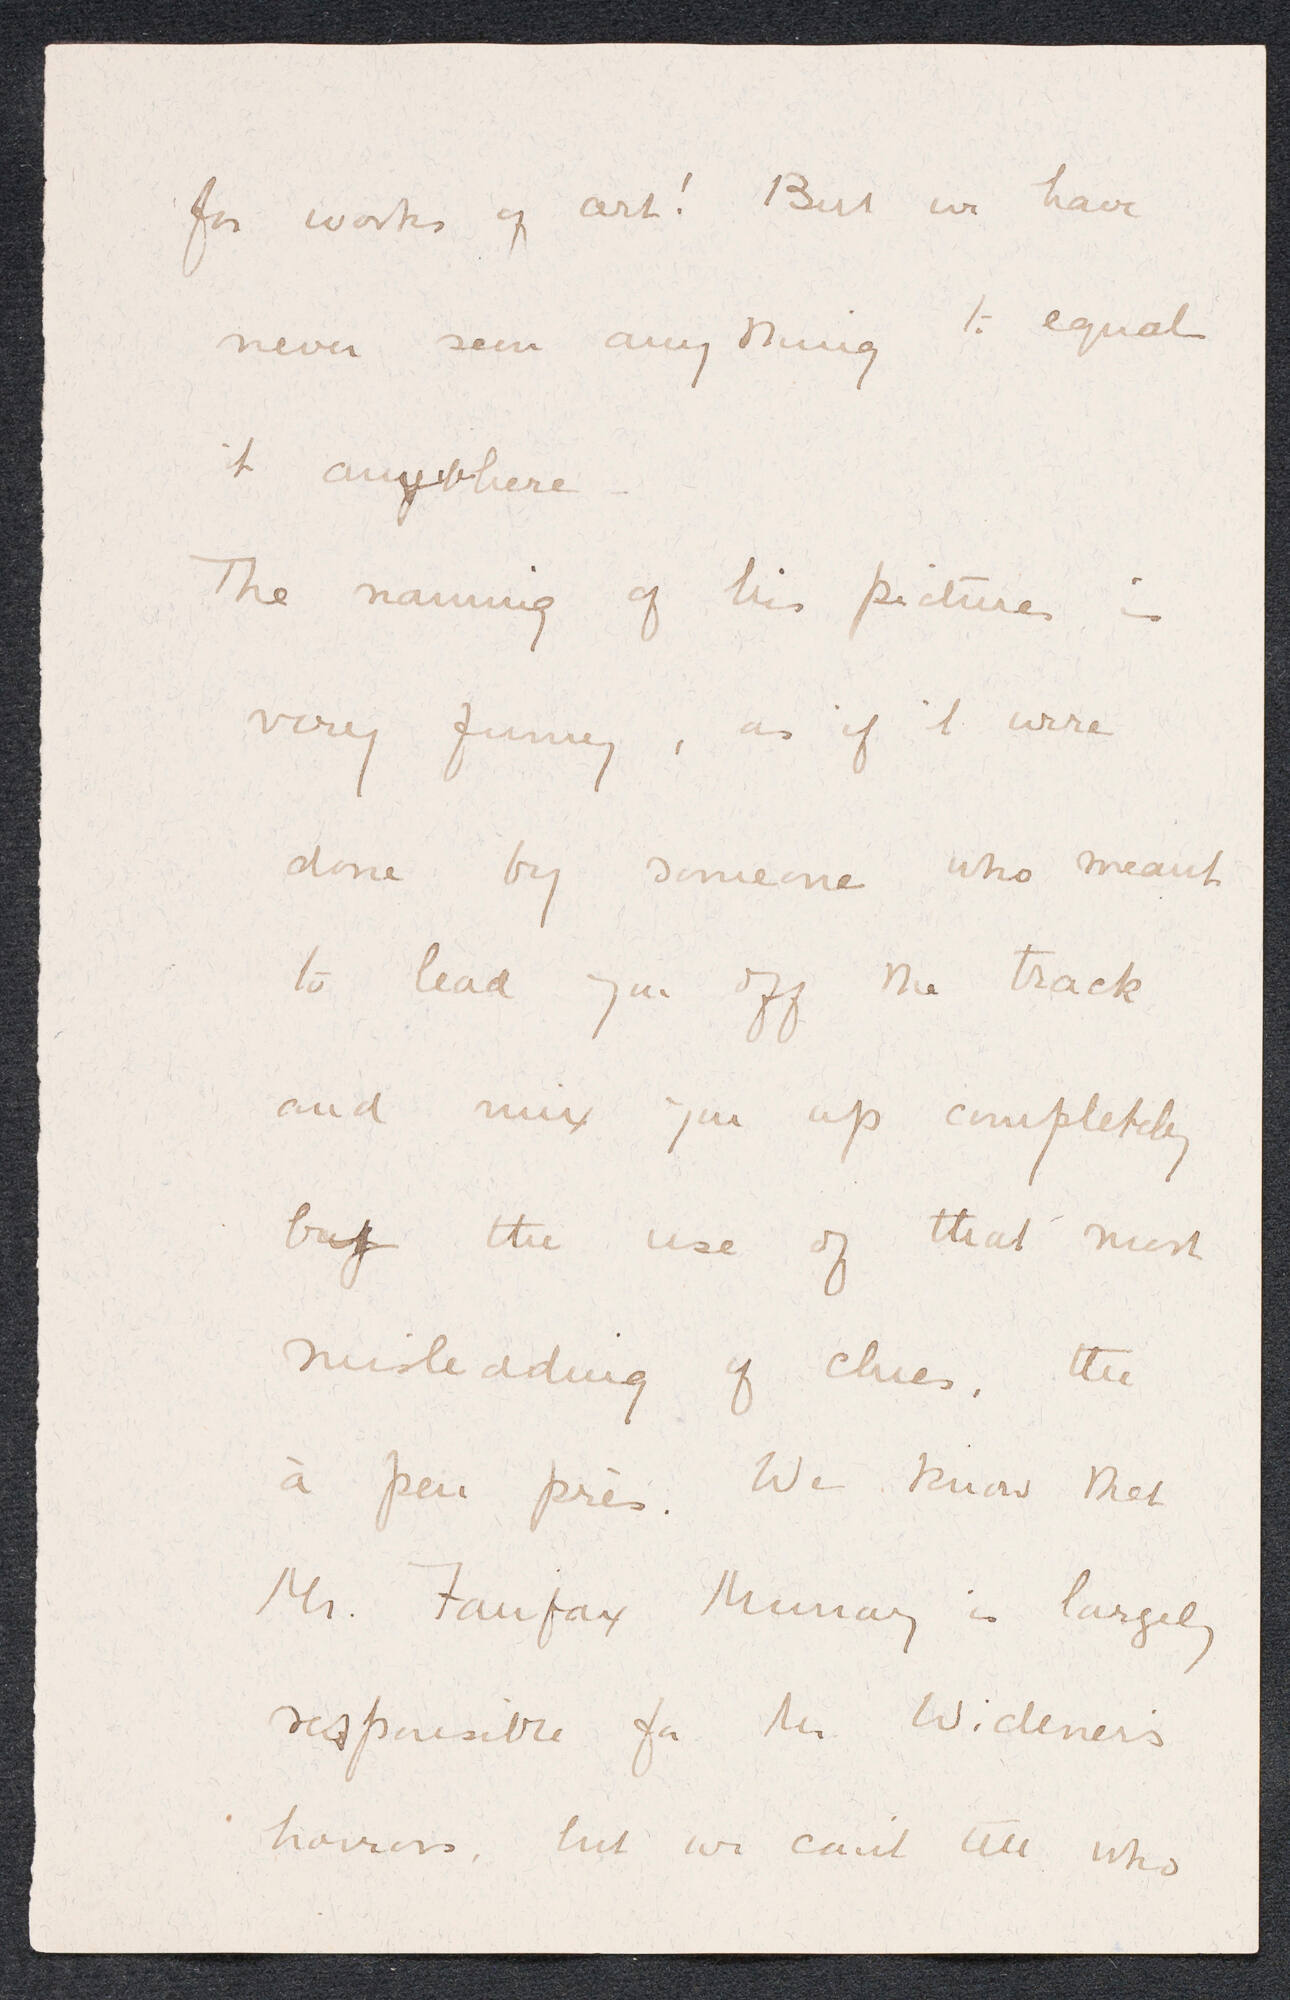 for works of art! But we have
never seen anything to equal
it anywhere -
The naming of his pictures is
very funny, as if it were
done by someone who meant
to lead you off the track
and mix you up completely
by the use of that most
misleading of clues, the
à peu près. We know that
Mr. Fairfax Murray is largely
responsible for Mr Widener's
horrors, but we can't tell who